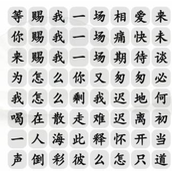 等赐我一场相爱来
你赐我一场痛快未
来赐我一场期待谈
为怎么你又匆匆必
我怎么剩我迟地何
喝在散走难迟离初
一人海此释怀开当
声倒彩彼么怎只道